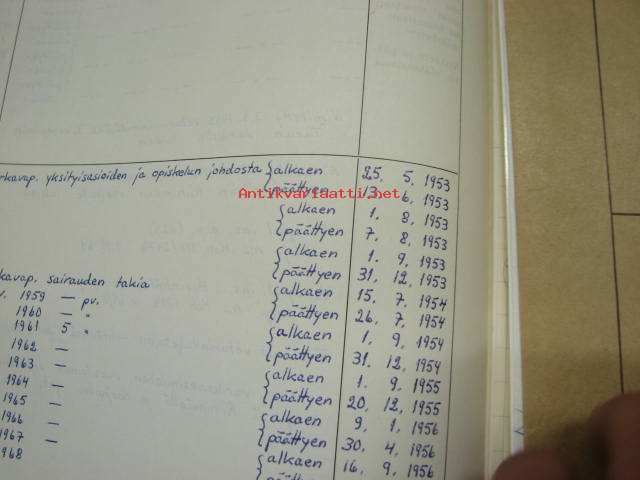 rkavap. yksityisasioiden ja opiskelun johdosta { alkaen 25. 5. 1953
Antikvariaatti.net
päättyen 13. 6. 1953
{ alkaen 1. 8. 1953
päättyen 7. 8. 1953
{ alkaen 1. 9. 1953
päättyen 31. 12. 1953
kavap. sairauden takia
{ alkaen 15. 7. 1954
v. 1959 — pv.
päättyen 26. 7. 1954
1960 — "
{ alkaen 1. 9. 1954
1961 5 "
päättyen 31. 12. 1954
1962 —
{ alkaen 1. 9. 1955
1963 —
päättyen 20. 12. 1955
1964 —
{ alkaen 9. 1. 1956
1965 —
päättyen 30. 4. 1956
1966 —
{ alkaen 16. 9. 1956
1967 —
1968